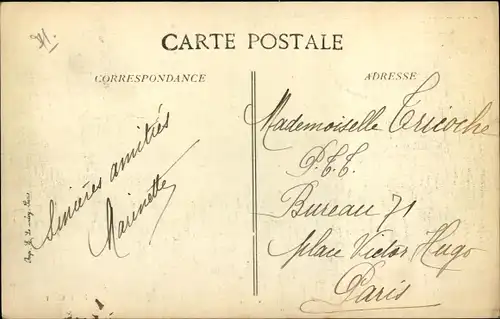 31.
CARTE POSTALE
CORRESPONDANCE
Sincères amitiés
Marinette
ADRESSE
Mademoiselle Tricoche
P.T.T.
Bureau 71
place Victor Hugo
Paris